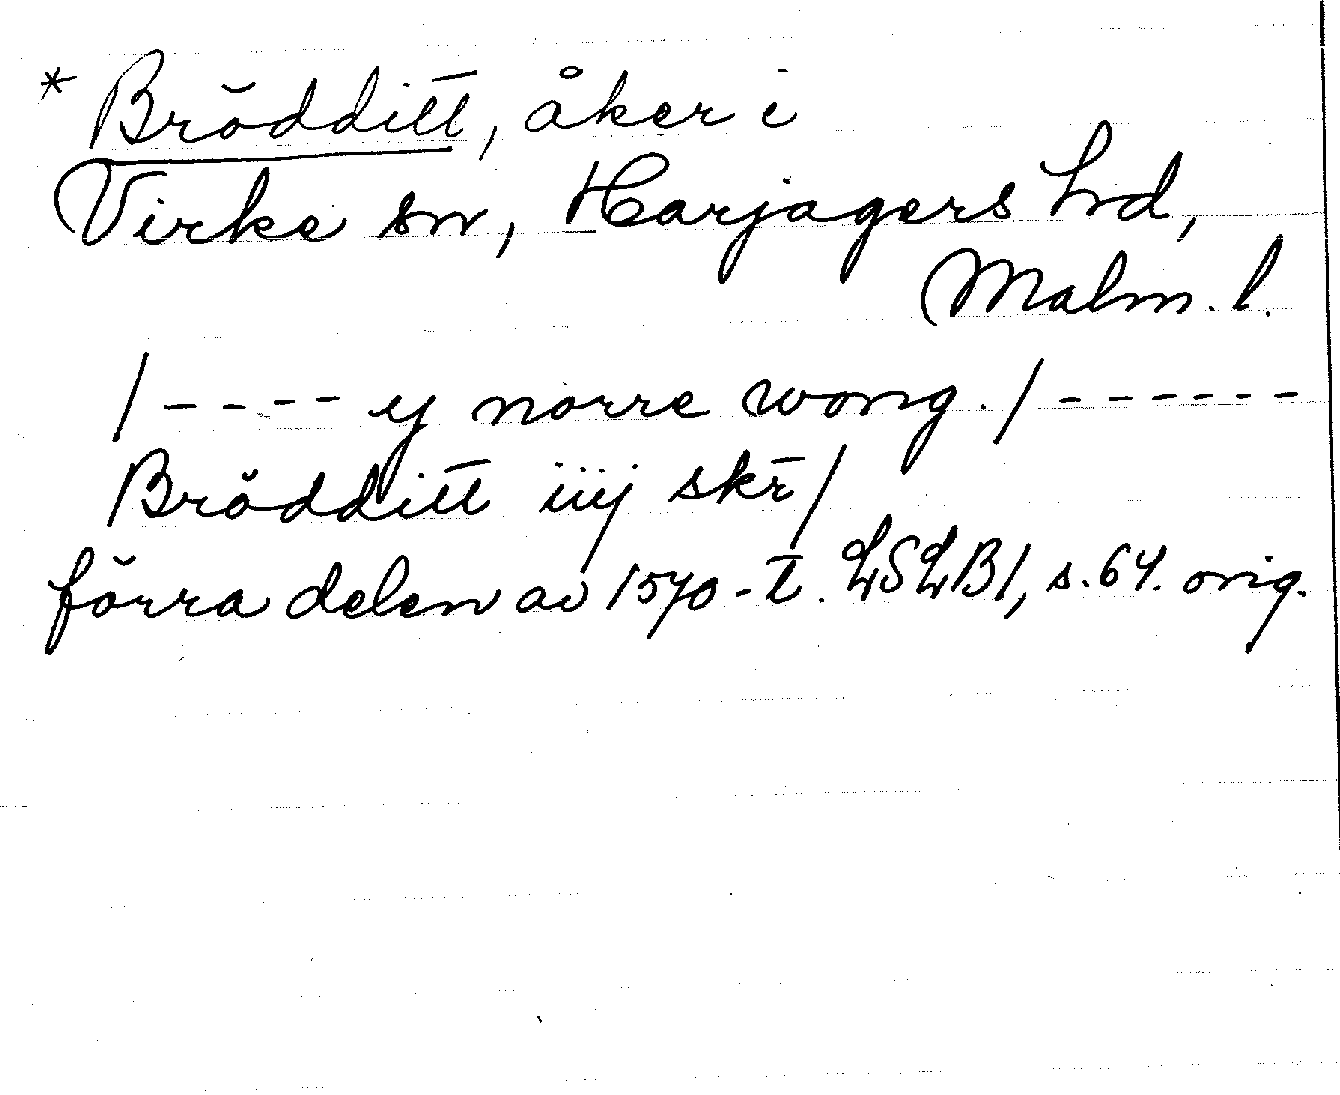 * Brödditt, åker i
Virke sn, Harjagers hd,
Malm. l.
/ - - - - y norre wong. / - - - - - -
Brödditt iiij skr̄ /
förra delen av 1570-t. LSLB1, s. 64. orig.